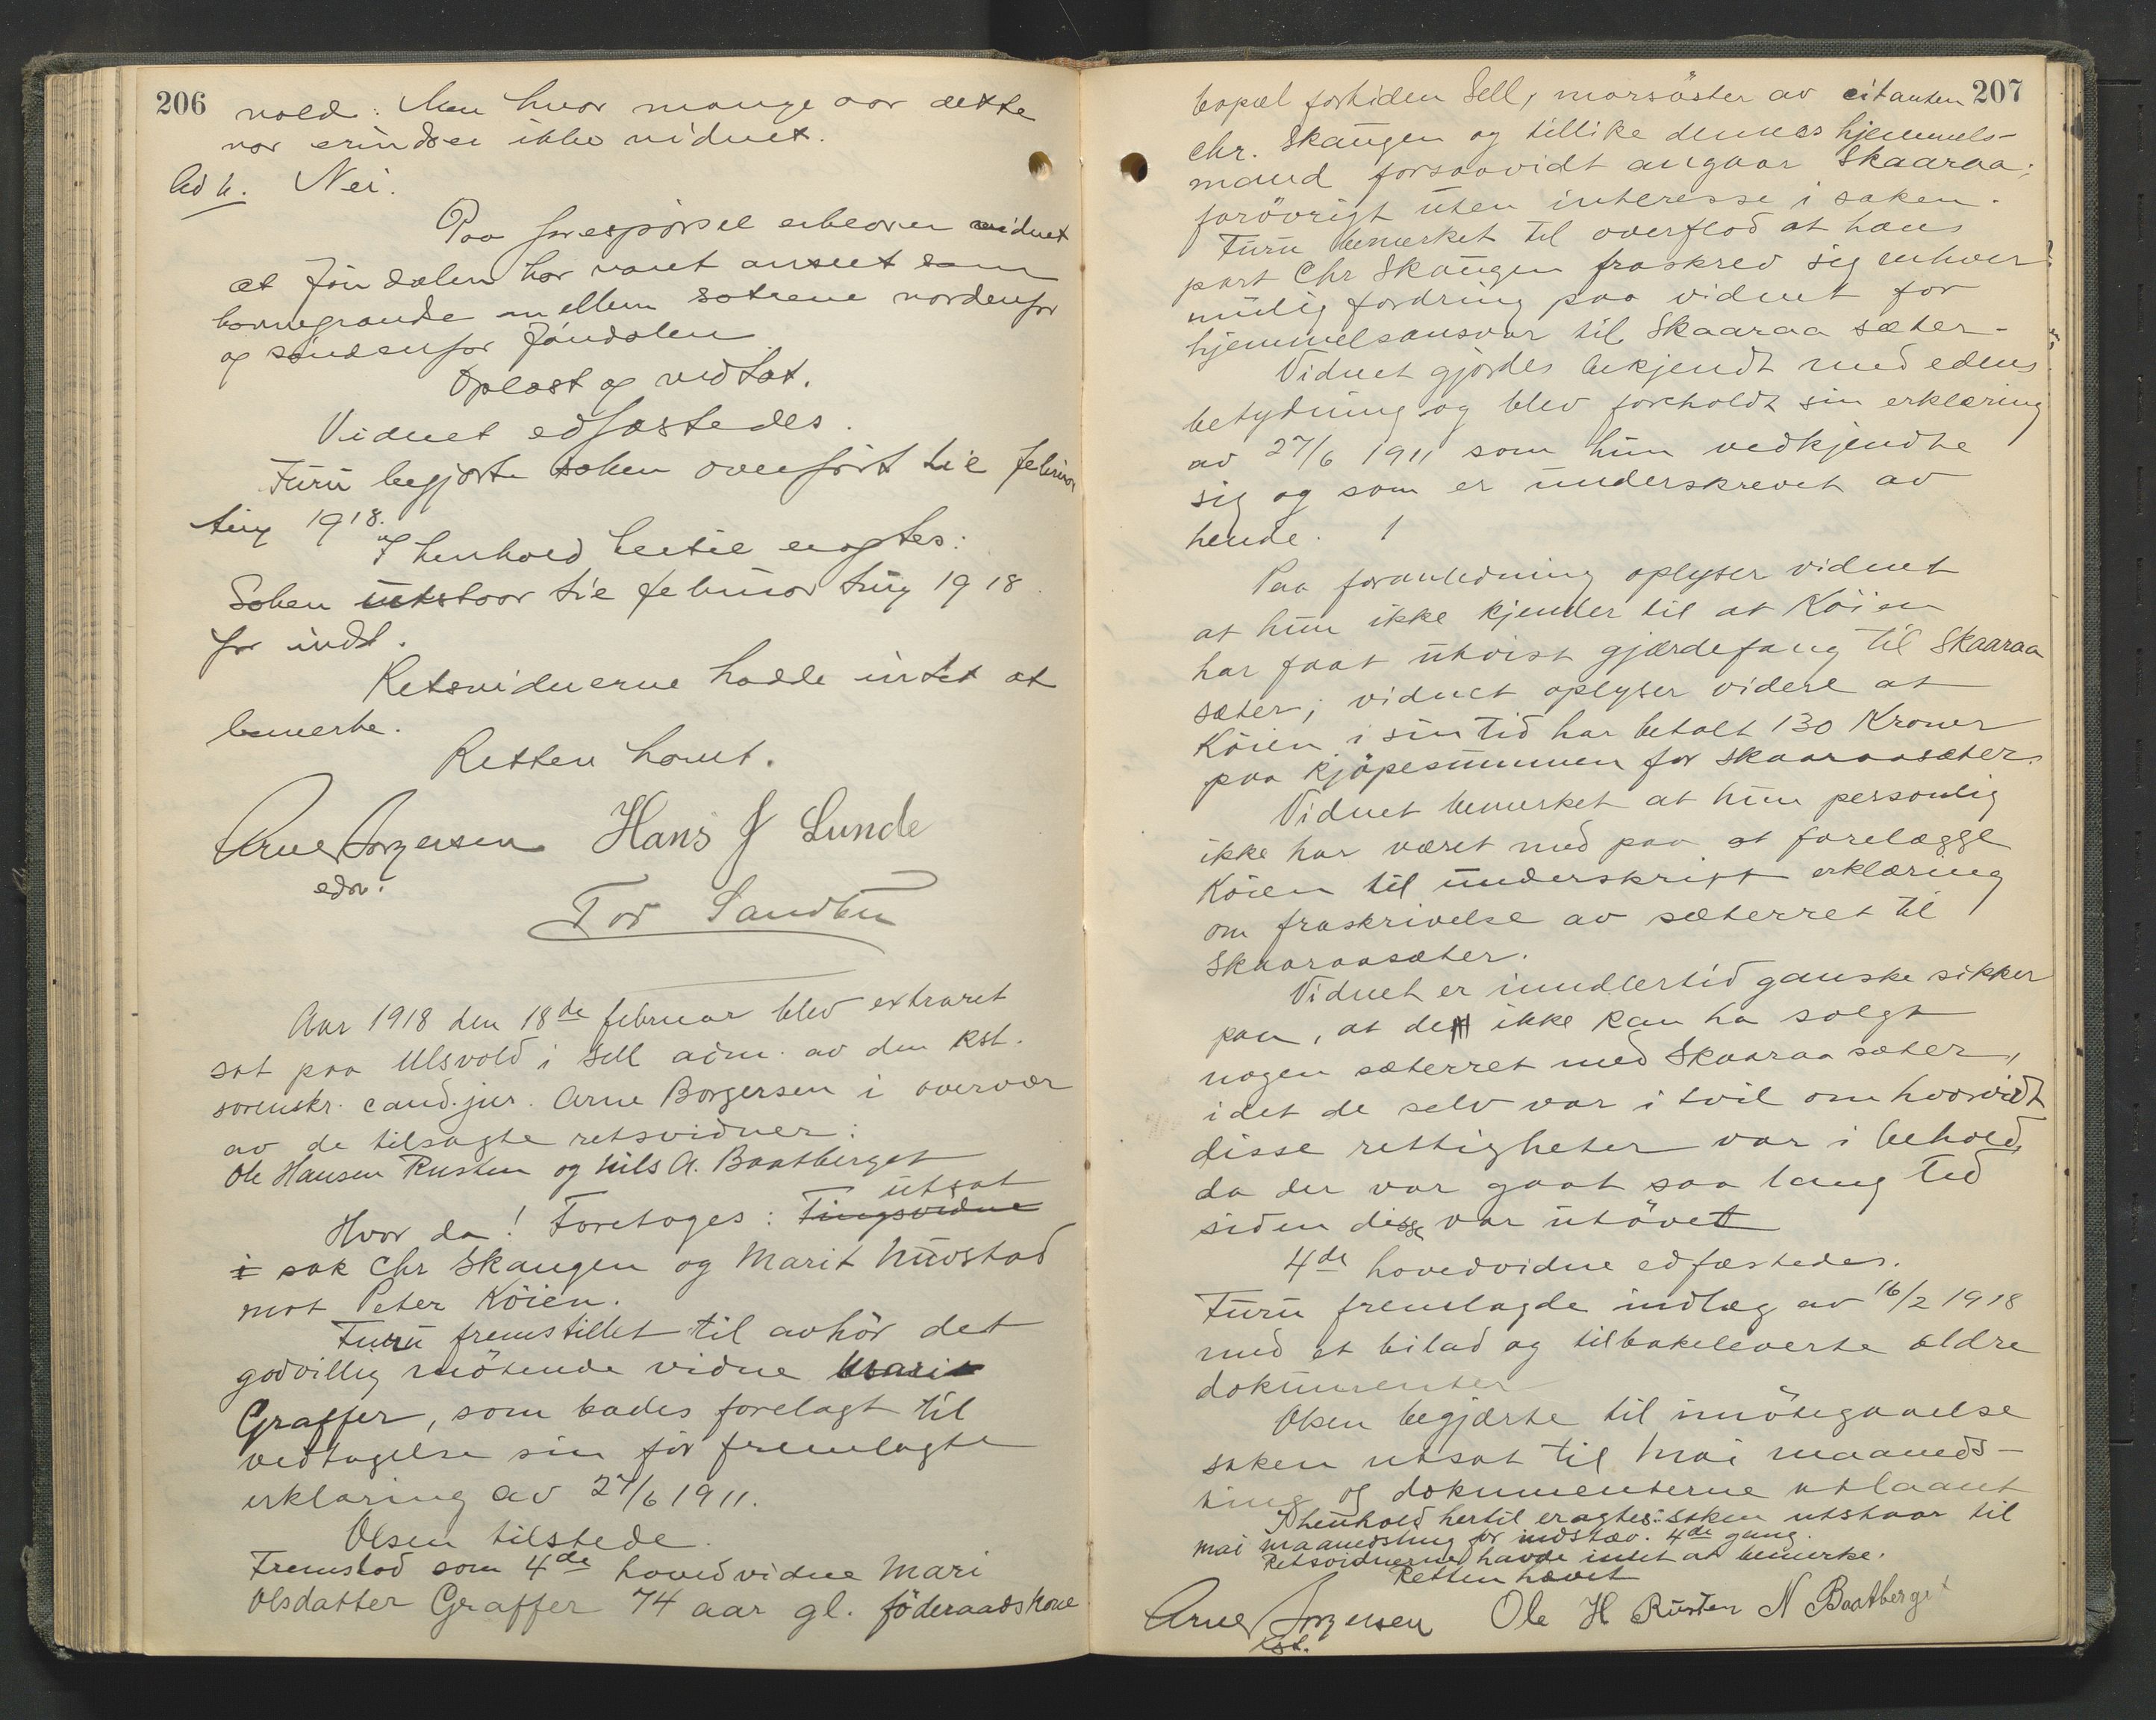 206
vold: Men hvor mange aar dette
var erindrer ikke vidnet.
Ad 4. Nei.
Paa forespørsel erklærer vidnet
at Jøndalen har været anseet som
havnegrændse mellem sætrene nordenfor
og søndenfor Jøndalen
Oplæst og vedtat.
Vidnet edfæstedes.
Furu begjærte saken overført til februar
ting 1918.
I henhold hertil eragtes:
Saken utstaar til februar ting 1918
for indst.
Retsvidnerne hadde intet at
bemerke.
Retten hævet.
Arne Borgersen Hans J Lunde
edsv.
Tor Sandbu
Aar 1918 den 18de februar blev extraret
sat paa Ulsvold i Sell adm. av den kst.
sorenskr. cand. jur. Arne Borgersen i overvær
av de tilsagte retsvidner:
Ole Hansen Rusten og Nils A. Baatberget
utsat
Hvor da! Foretoges: Tingsvidne
i sak Chr Skaugen og Marit Nustad
mot Peter Köien.
Furu fremstillet til avhör det
godvillig mötende vidne Mari
Graffer, som bades forelagt til
vedtagelse sin för fremlagte
erklæring av 27/6 1911.
Olsen tilstede.
Fremstod som 4de hovedvidne Mari
Olsdatter Graffer 74 aar gl. föderaadskone
207
bopæl fortiden Sell, morsöster av citanten
Chr. Skaugen og tillike dennes hjemmels-
mand forsaavidt angaar Skaaraa;
forövrigt uten interesse i saken.
Furu bemerket til overflod at hans
part Chr Skaugen fraskrev sig enhver
mulig fordring paa vidnet for
hjemmelsansvar til Skaaraa sæter-
Vidnet gjordes bekjendt med edens
betydning og blev foreholdt sin erklæring
av 27/6 1911 som hun vedkjendte
sig og som er underskrevet av
hende.
Paa foranledning oplyser vidnet
at hun ikke kjender til at Köien
har faat utvist gjærdefang til Skaaraa
sæter; vidnet oplyser videre at
Köien i sin tid har betalt 130 Kroner
paa kjöpesummen for Skaaraasæter.
Vidnet bemerket at hun personlig
ikke har været med paa at forelægge
Köien til underskrift erklæring
om fraskrivelse av sæterret til
Skaaraasæter.
Vidnet er imidlertid ganske sikker
paa, at de ikke kan ha solgt
nogen sæterret med Skaaraa sæter,
idet de selv var i tvil om hvorvidt
disse rettigheter var i behold,
da der var gaat saa lang tid
siden disse var utövet
4de hovedvidne edfæstedes.
Furu fremlagde indlæg av 16/2 1918
med et bilad og tilbakeleverte ældre
dokumenter
Olsen begjærte til imötegaaelse
saken utsat til mai maaneds-
ting og dokumenterne utlaant
I henhold hertil eragtes: saken utstaar til
mai maanedsting for indstæv. 4de gang.
Retsvidnerne havde intet at bemerke.
Retten hævet
Arne Borgersen Ole H Rusten N Baatberget
kst.